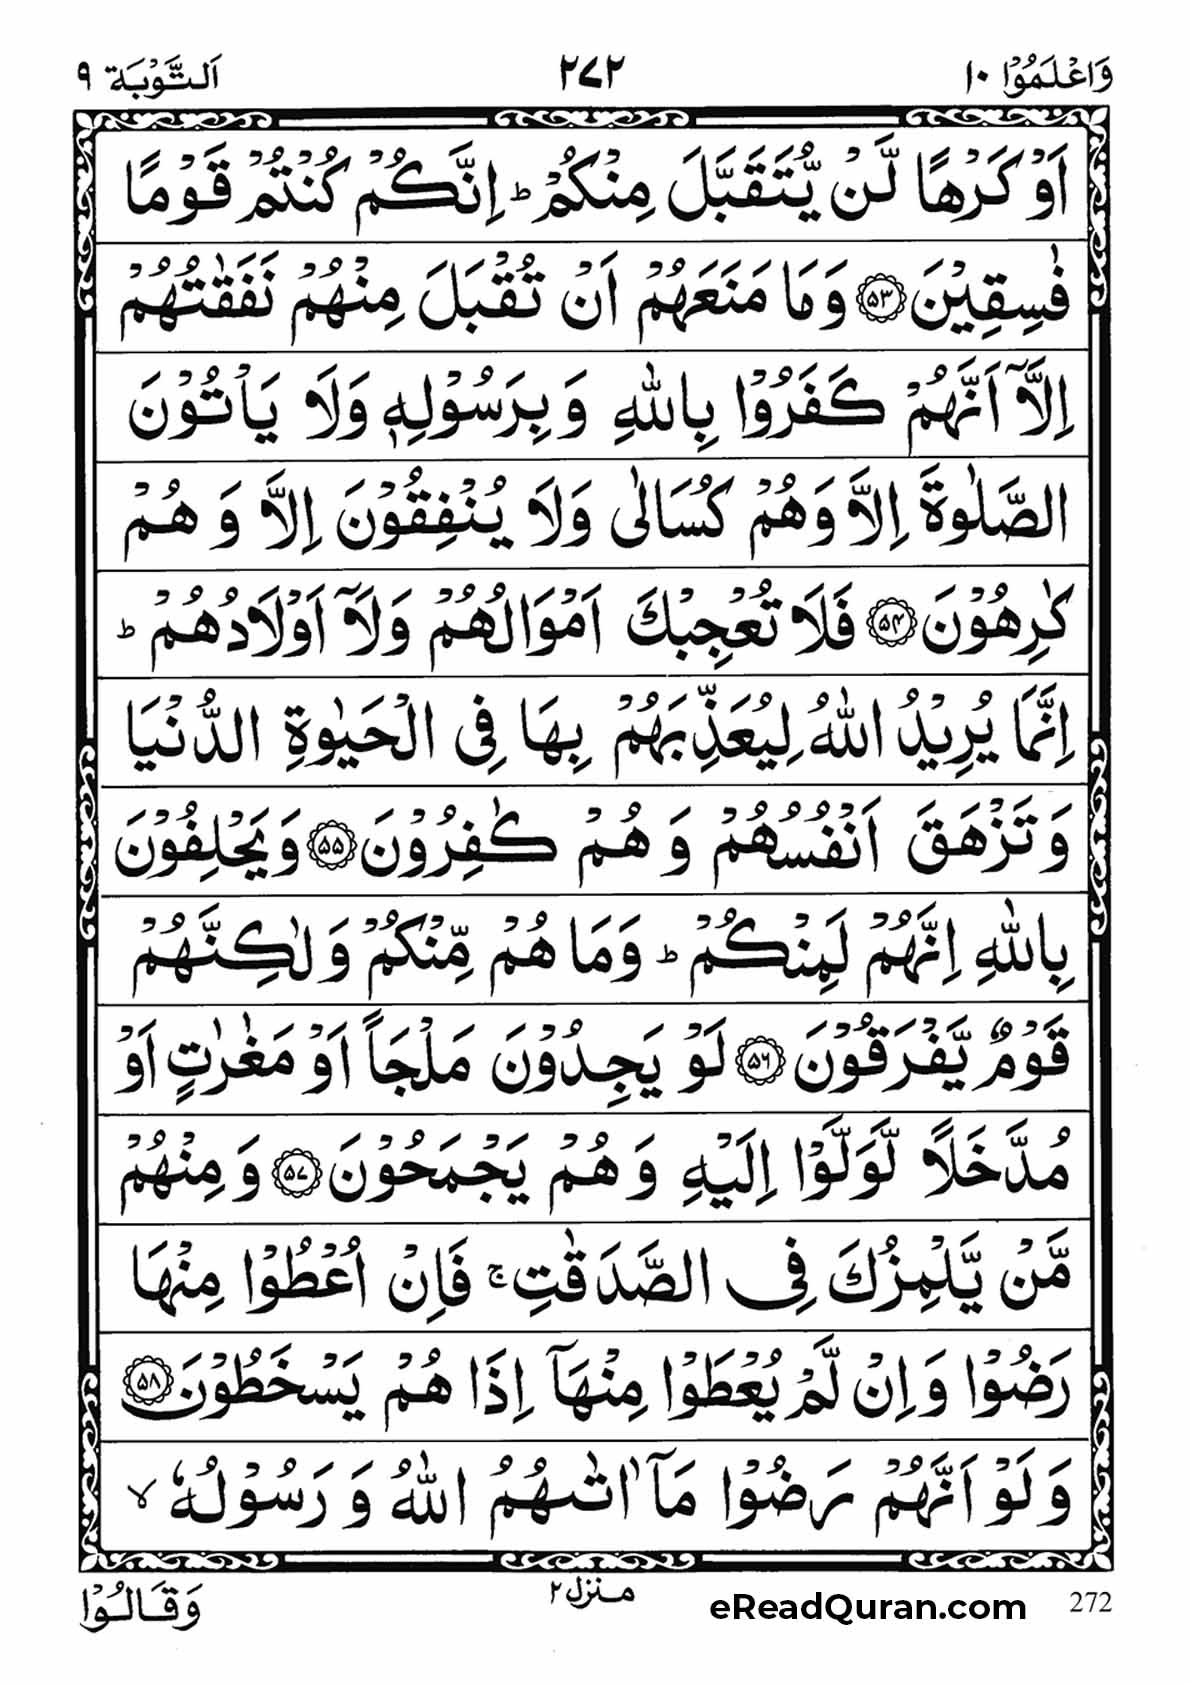 وَاعْلَمُوْٓا ۱۰ ۲۷۲ اَلتَّوْبَة ۹
اَوْ كَرْهًا لَّنْ يُّتَقَبَّلَ مِنْكُمْ ؕ اِنَّكُمْ كُنْتُمْ قَوْمًا
فٰسِقِيْنَ ﴿۵۳﴾ وَمَا مَنَعَهُمْ اَنْ تُقْبَلَ مِنْهُمْ نَفَقٰتُهُمْ
اِلَّاۤ اَنَّهُمْ كَفَرُوْا بِاللّٰهِ وَ بِرَسُوْلِهٖ وَلَا يَاْتُوْنَ
الصَّلٰوةَ اِلَّا وَهُمْ كُسَالٰى وَلَا يُنْفِقُوْنَ اِلَّا وَ هُمْ
كٰرِهُوْنَ ﴿۵۴﴾ فَلَا تُعْجِبْكَ اَمْوَالُهُمْ وَلَاۤ اَوْلَادُهُمْ ؕ
اِنَّمَا يُرِيْدُ اللّٰهُ لِيُعَذِّبَهُمْ بِهَا فِى الْحَيٰوةِ الدُّنْيَا
وَ تَزْهَقَ اَنْفُسُهُمْ وَ هُمْ كٰفِرُوْنَ ﴿۵۵﴾ وَ يَحْلِفُوْنَ
بِاللّٰهِ اِنَّهُمْ لَمِنْكُمْ ؕ وَمَا هُمْ مِّنْكُمْ وَ لٰكِنَّهُمْ
قَوْمٌ يَّفْرَقُوْنَ ﴿۵۶﴾ لَوْ يَجِدُوْنَ مَلْجَاً اَوْ مَغٰرٰتٍ اَوْ
مُدَّخَلًا لَّوَلَّوْا اِلَيْهِ وَ هُمْ يَجْمَحُوْنَ ﴿۵۷﴾ وَ مِنْهُمْ
مَّنْ يَّلْمِزُكَ فِى الصَّدَقٰتِ ۚ فَاِنْ اُعْطُوْا مِنْهَا
رَضُوْا وَ اِنْ لَّمْ يُعْطَوْا مِنْهَاۤ اِذَا هُمْ يَسْخَطُوْنَ ﴿۵۸﴾
وَ لَوْ اَنَّهُمْ رَضُوْا مَاۤ اٰتٰىهُمُ اللّٰهُ وَ رَسُوْلُهٗ ۙ
وَقَالُوْا منزل ۲ eReadQuran.com 272